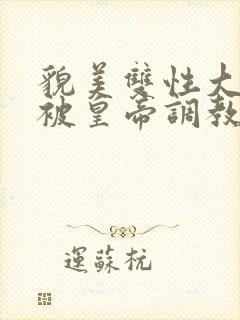 貌美雙性大
被皇帝調教
運蘇杭